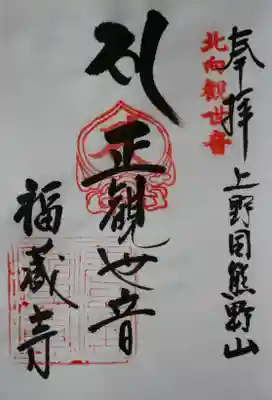 奉拝
上野目熊野山
北向観世音
正観世音
福蔵寺